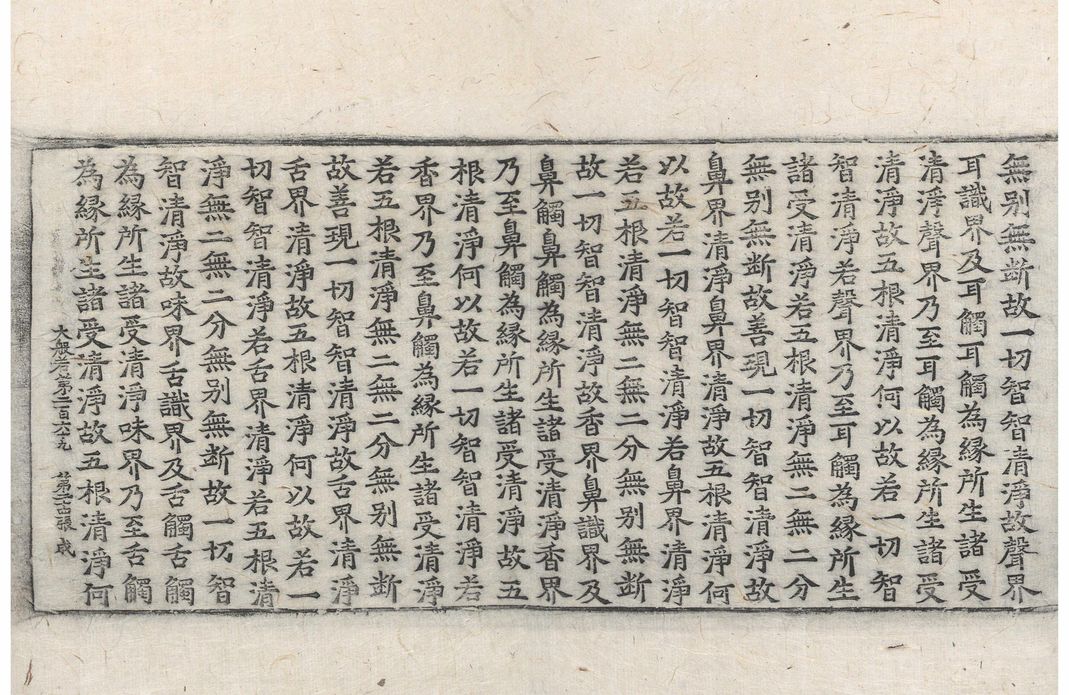 無別無断故一切智智清淨故聲界
耳識界及耳觸耳觸為緣所生諸受
清淨聲界乃至耳觸為緣所生諸受
清淨故五根清淨何以故若一切智
智清淨若聲界乃至耳觸為緣所生
諸受清淨若五根清淨無二無二分
無別無断故善現一切智智清淨故
鼻界清淨鼻界清淨故五根清淨何
以故若一切智智清淨若鼻界清淨
若五根清淨無二無二分無別無断
故一切智智清淨故香界鼻識界及
鼻觸鼻觸為緣所生諸受清淨香界
乃至鼻觸為緣所生諸受清淨故五
根清淨何以故若一切智智清淨若
香界乃至鼻觸為緣所生諸受清淨
若五根清淨無二無二分無別無断
故善現一切智智清淨故舌界清淨
舌界清淨故五根清淨何以故若一
切智智清淨若舌界清淨若五根清
淨無二無二分無別無断故一切智
智清淨故味界舌識界及舌觸舌觸
為緣所生諸受清淨味界乃至舌觸
為緣所生諸受清淨故五根清淨何
大般若第二百六十九 第 張